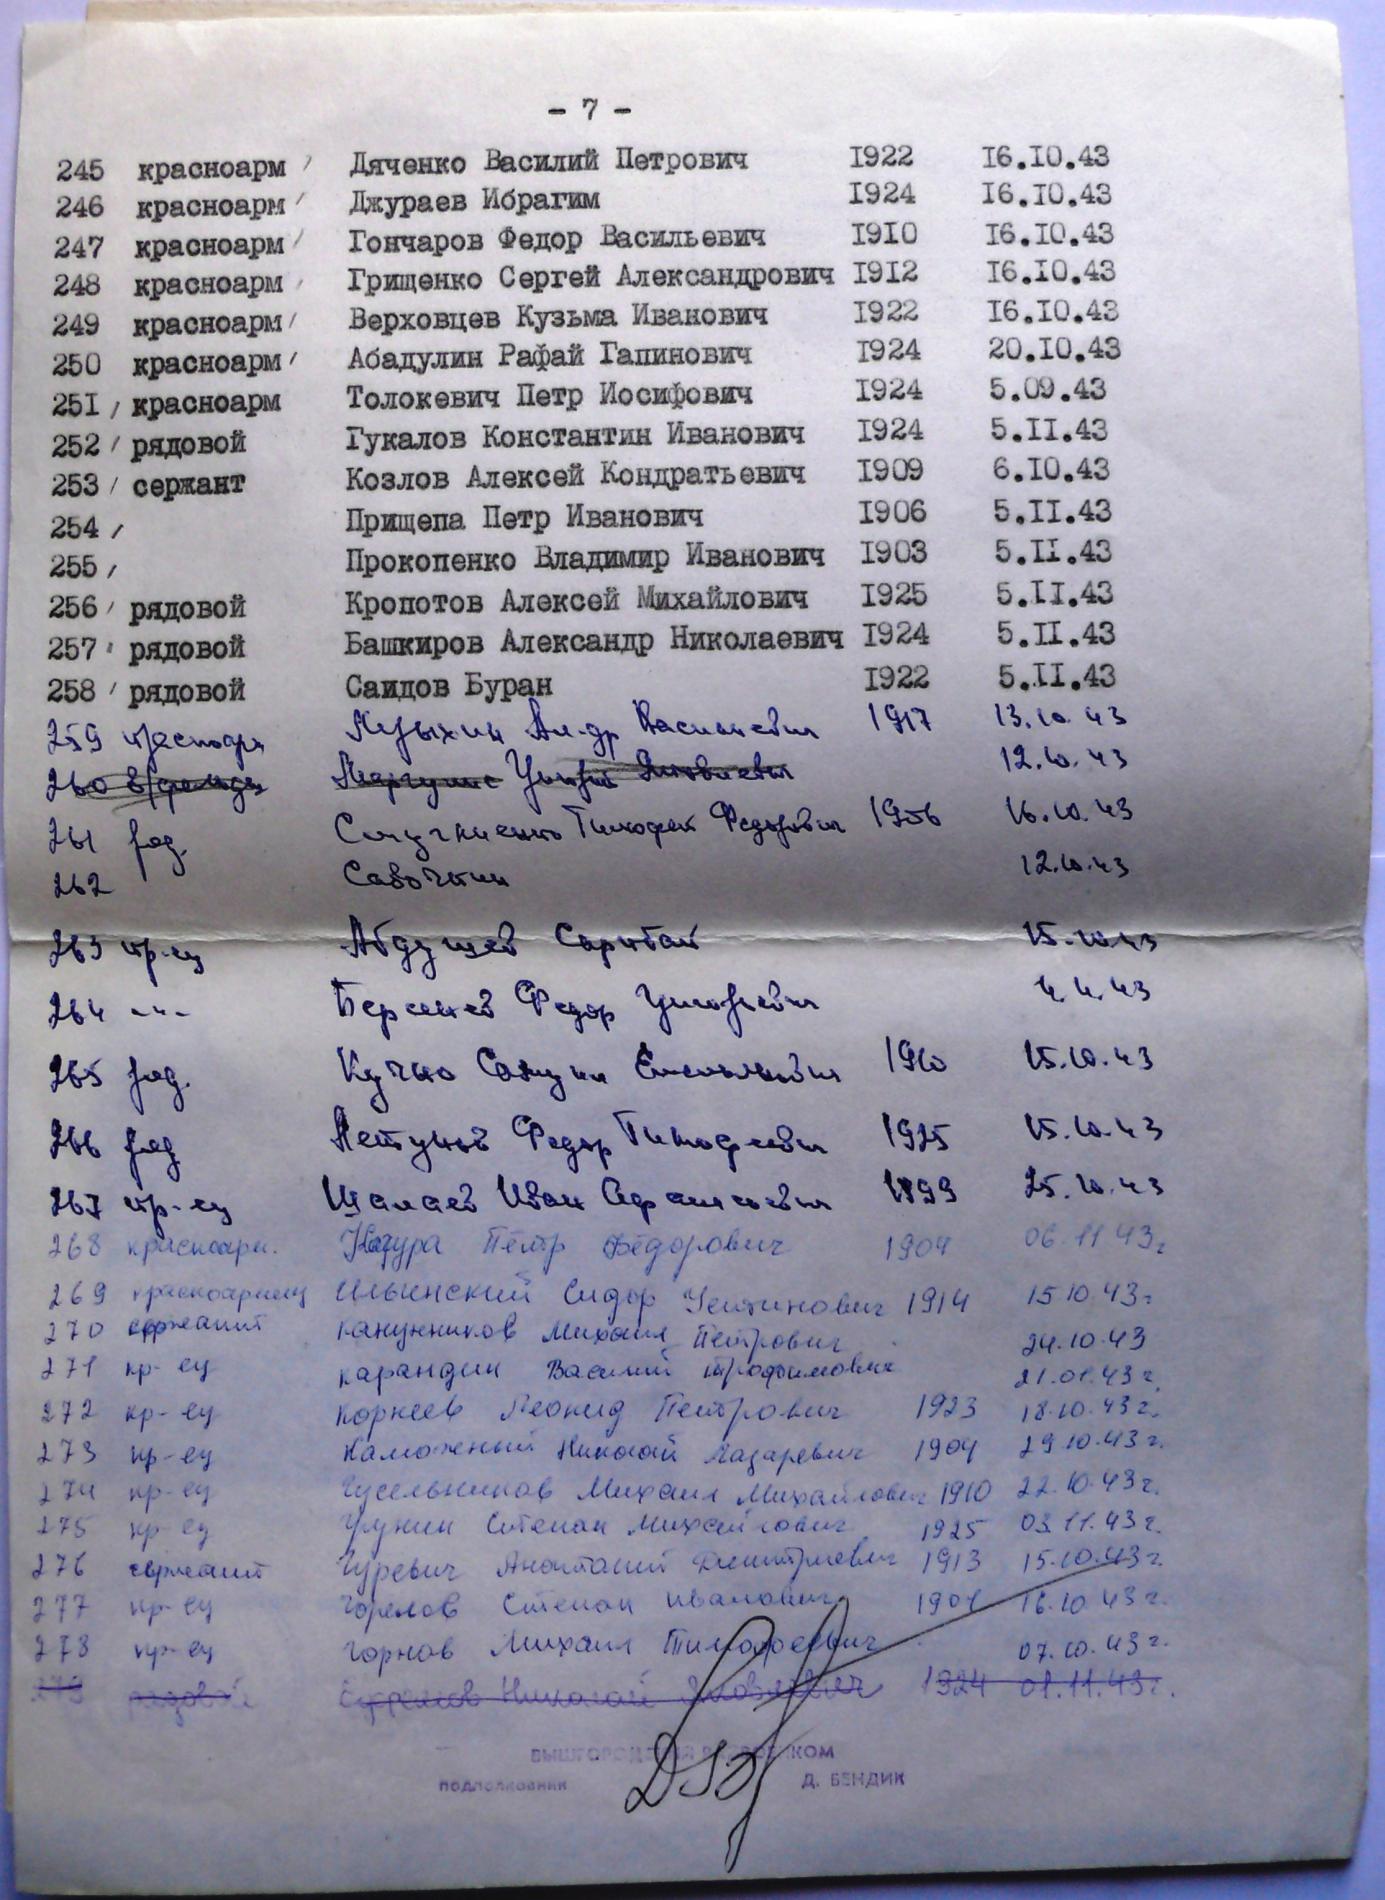 - 7 -
245 красноарм Дяченко Василий Петрович 1922 16.10.43
246 красноарм Джураев Ибрагим 1924 16.10.43
247 красноарм Гончаров Федор Васильевич 1910 16.10.43
248 красноарм Грищенко Сергей Александрович 1912 16.10.43
249 красноарм Верховцев Кузьма Иванович 1922 16.10.43
250 красноарм Абадулин Рафай Гапинович 1924 20.10.43
251 красноарм Толокевич Петр Иосифович 1924 5.09.43
252 рядовой Гукалов Константин Иванович 1924 5.11.43
253 сержант Козлов Алексей Кондратьевич 1909 6.10.43
254 Прищепа Петр Иванович 1906 5.11.43
255 Прокопенко Владимир Иванович 1903 5.11.43
256 рядовой Кропотов Алексей Михайлович 1925 5.11.43
257 рядовой Башкиров Александр Николаевич 1924 5.11.43
258 рядовой Саидов Буран 1922 5.11.43
259 Ал-др Васильевич 1917 13.10.43
260 12.10.43
261 ряд. Тимофей Федорович 16.10.43
262 Савочкин 12.10.43
263 кр-ец 15.10.43
264 -"- Федор
265 ряд. Кучко 1910 15.10.43
266 ряд Петунов Федор Тимофеевич 1925 15.10.43
267 кр-ец Шалаев Иван 1899 25.10.43
268 красноарм. Пётр Фёдорович 1904 06.11 43г
269 красноармеец Ильинский Сидор Устинович 1914 15.10.43г
270 сержант Канунников Михаил Петрович 24.10.43
271 кр-ец Карандин Василий Трофимович 21.01.43г.
272 кр-ец Корнеев Леонид Петрович 1923 18.10.43г.
273 кр-ец Каможный Николай Лазаревич 1904 29.10.43г.
274 кр-ец Гусельников Михаил Михайлович 1910 22.10.43г.
275 кр-ец Грунин Степан Михайлович 1925 03.11.43г.
276 сержант Гуревич Анатолий Дмитриевич 1913 15.10.43г.
277 кр-ец Горелов Степан Иванович 16.10.43г.
278 кр-ец Горнов Михаил Тимофеевич 07.10.43г.
279 рядовой Ефремов Николай Яковлевич 1924 01.11.43г.
ВЫШГОРОДСКИЙ РАЙВОЕНКОМ
ПОДПОЛКОВНИК Д. БЕНДИК